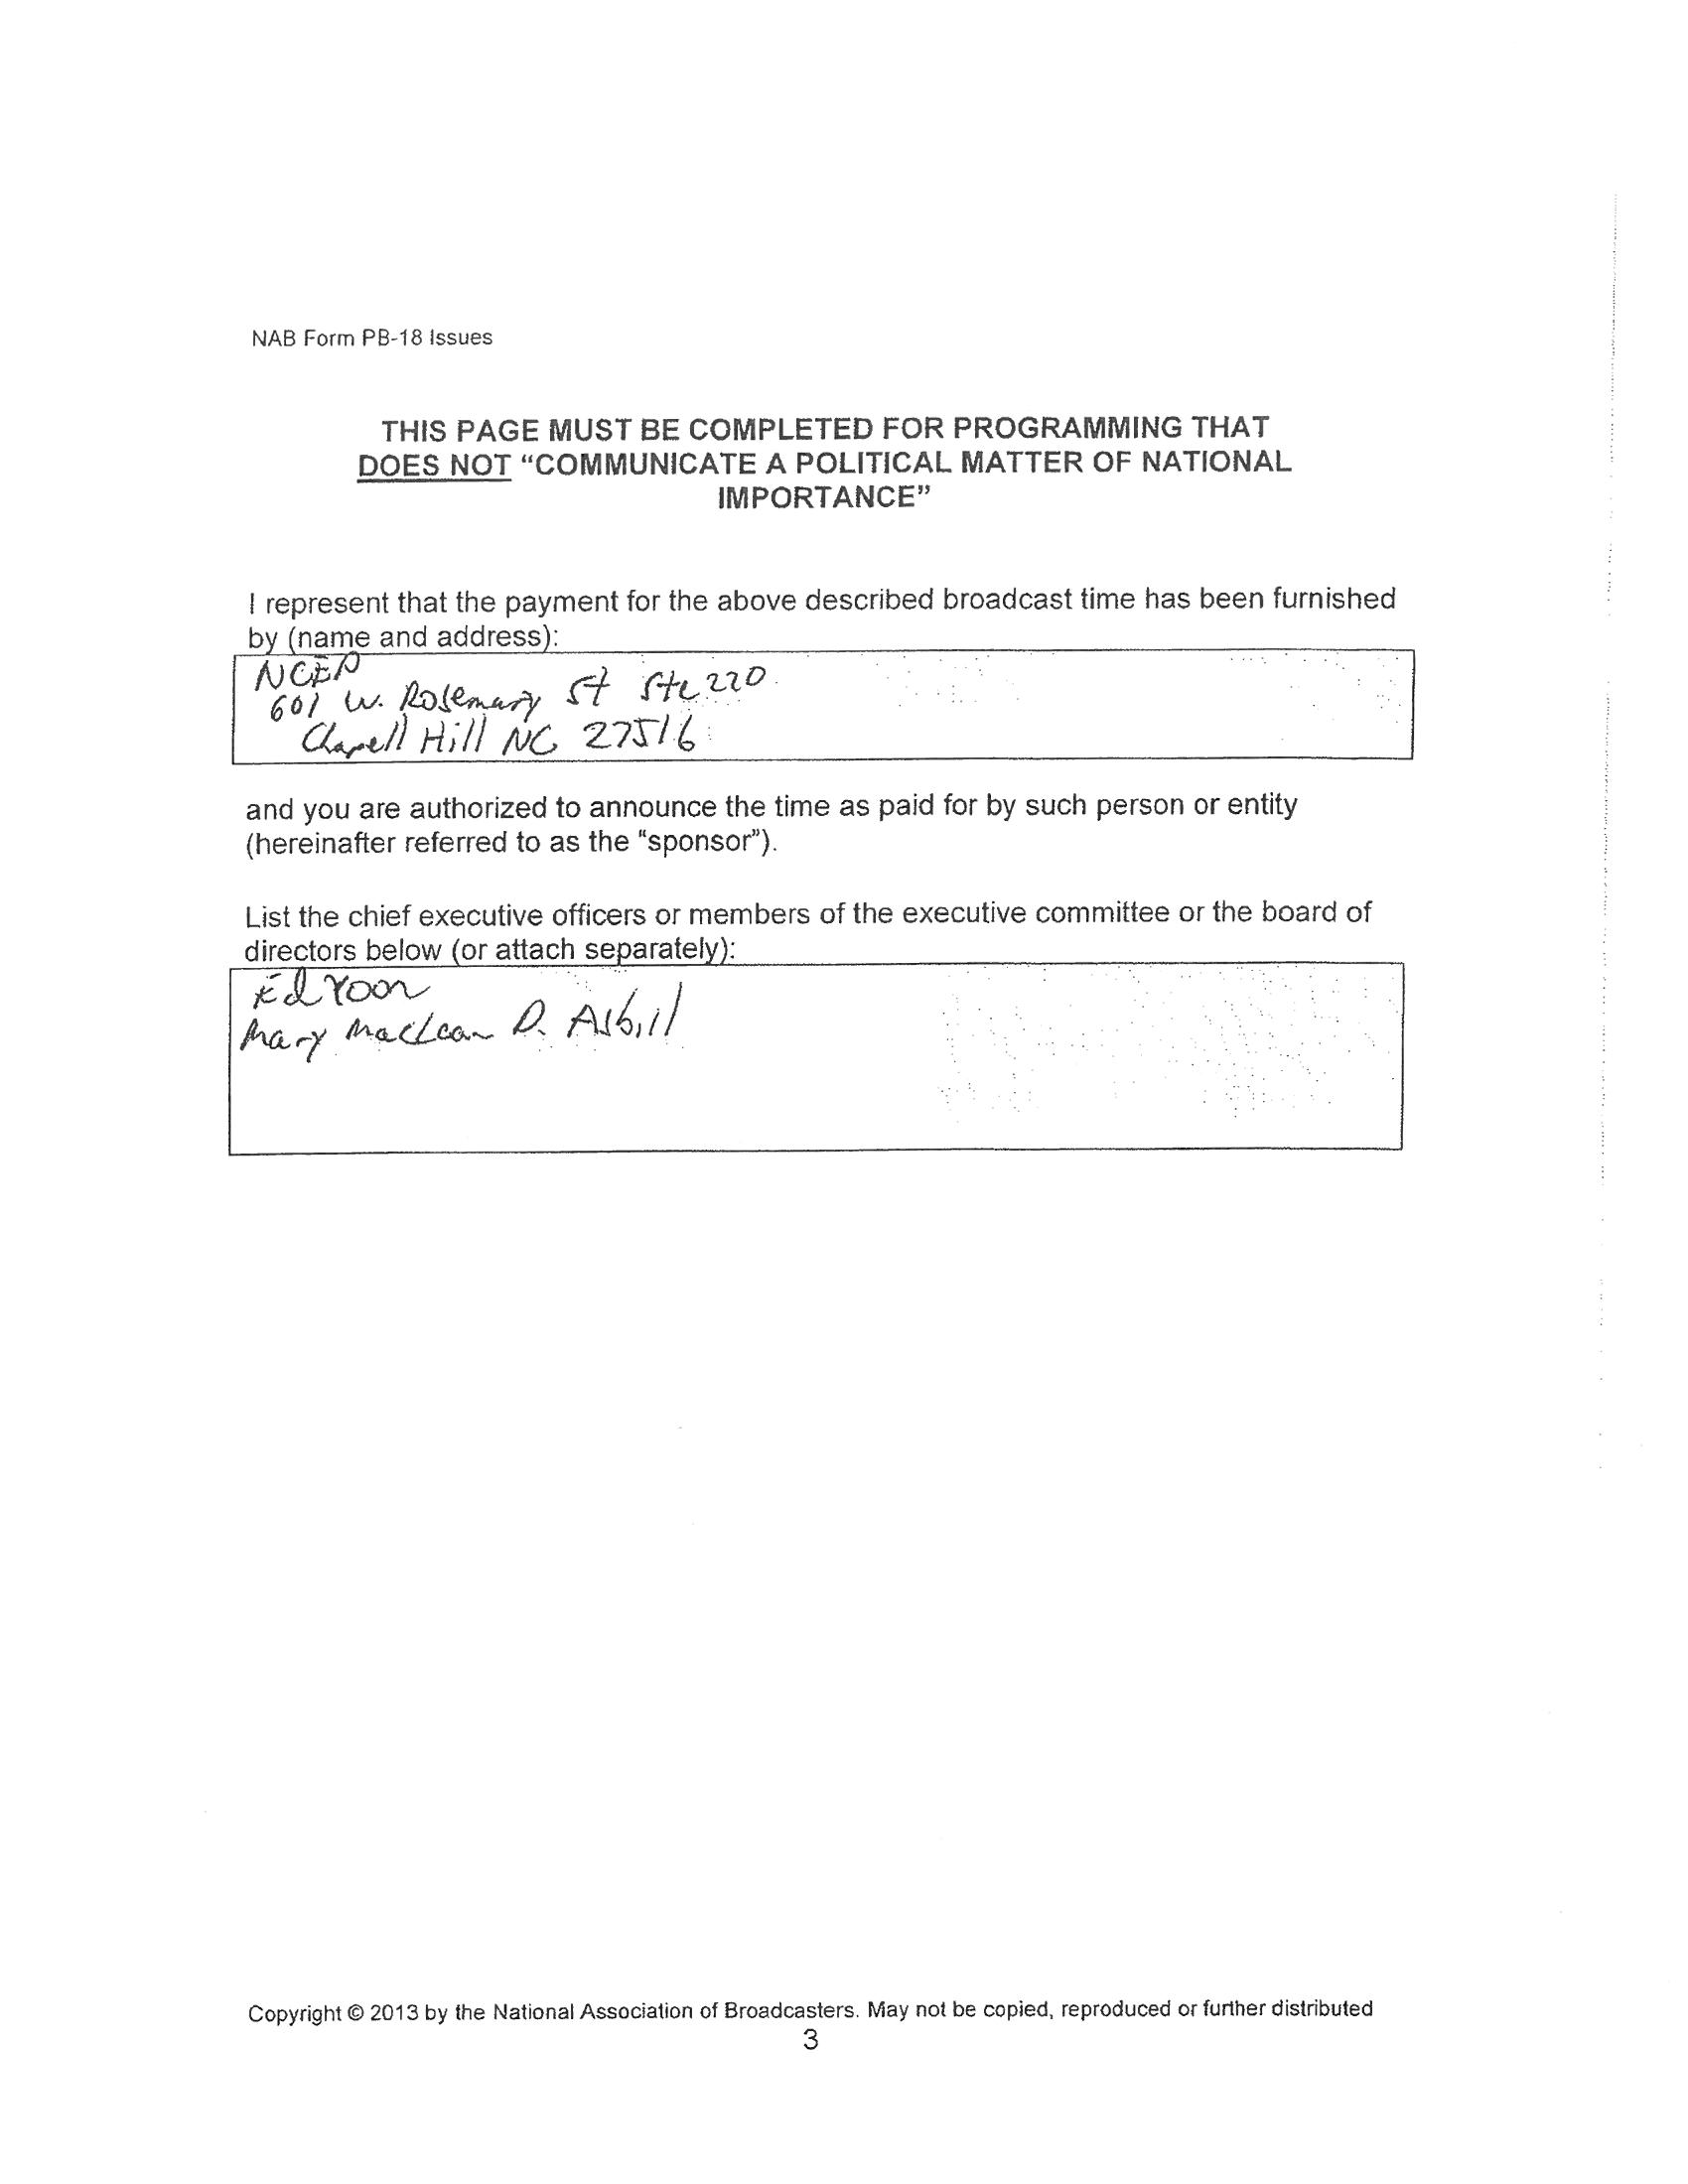 NAB Form PB-18 Issues
THIS PAGE MUST BE COMPLETED FOR PROGRAMMING THAT
DOES NOT “COMMUNICATE A POLITICAL MATTER OF NATIONAL
IMPORTANCE”
I represent that the payment for the above described broadcast time has been furnished
by (name and address):
NCEP
601 W. Rosemary St Ste 220
Chapell Hill NC 27516
and you are authorized to announce the time as paid for by such person or entity
(hereinafter referred to as the “sponsor”).
List the chief executive officers or members of the executive committee or the board of
directors below (or attach separately):
Ed Yoon
Mary MacLean D.
Copyright © 2013 by the National Association of Broadcasters. May not be copied, reproduced or further distributed
3